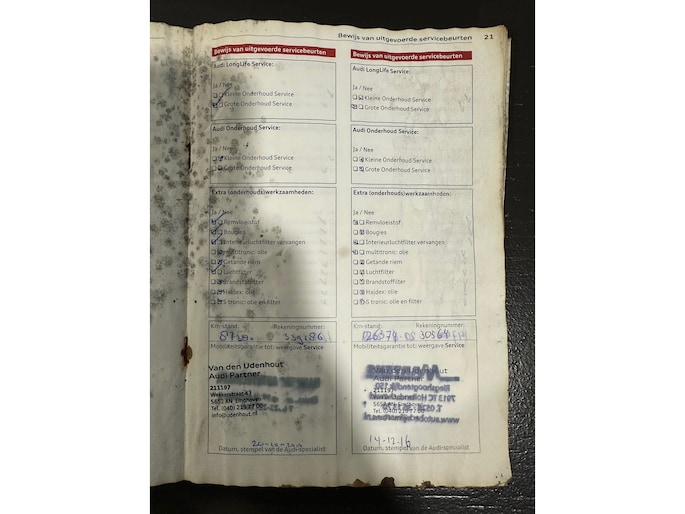 Bewijs van uitgevoerde servicebeurten 21
Bewijs van uitgevoerde servicebeurten
Audi LongLife Service:
Ja / Nee
Kleine Onderhoud Service
Grote Onderhoud Service
Audi Onderhoud Service:
Ja / Nee
Kleine Onderhoud Service
Grote Onderhoud Service
Extra (onderhouds)werkzaamheden:
Ja / Nee
Remvloeistof
Bougies
Interieurluchtfilter vervangen
multitronic: olie
Getande riem
Luchtfilter
Brandstoffilter
Haldex: olie
S tronic: olie en filter
Km-stand: Rekeningnummer:
Mobiliteitsgarantie tot: weergave Service
Van den Udenhout
Audi Partner
211197
Eindhoven
Tel. (040)
info@udenhout.nl
Datum, stempel van de Audi-specialist
Bewijs van uitgevoerde servicebeurten
Audi LongLife Service:
Ja / Nee
Kleine Onderhoud Service
Grote Onderhoud Service
Audi Onderhoud Service:
Ja / Nee
Kleine Onderhoud Service
Grote Onderhoud Service
Extra (onderhouds)werkzaamheden:
Ja / Nee
Remvloeistof
Bougies
Interieurluchtfilter vervangen
multitronic: olie
Getande riem
Luchtfilter
Brandstoffilter
Haldex: olie
S tronic: olie en filter
Km-stand: Rekeningnummer:
Mobiliteitsgarantie tot: weergave Service
Audi Partner
14-12-16
Datum, stempel van de Audi-specialist